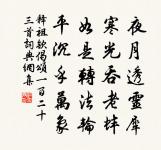 夜月透靈犀
寒光吞老蚌
如是轉法輪
平沉乎萬象
釋祖欽偈頌一百二十
三首詞典網集